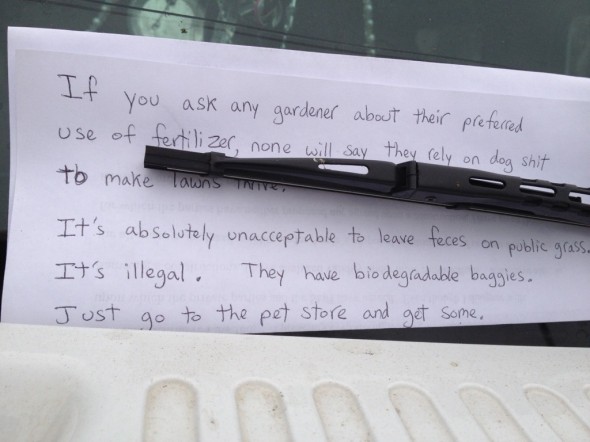 If you ask any gardener about their preferred
use of fertilizer, none will say they rely on dog shit
to make lawns thrive.
It's absolutely unacceptable to leave feces on public grass.
It's illegal. They have biodegradable baggies.
Just go to the pet store and get some.